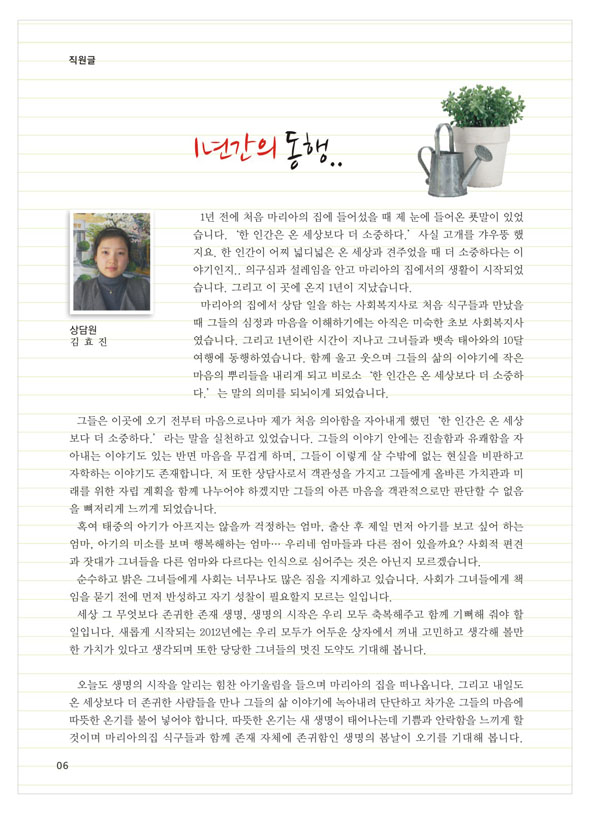 직원글
1년간의 동행..
1년 전에 처음 마리아의 집에 들어섰을 때 제 눈에 들어온 푯말이 있었
습니다. ‘한 인간은 온 세상보다 더 소중하다.’ 사실 고개를 갸우뚱 했
지요. 한 인간이 어찌 넓디넓은 온 세상과 견주었을 때 더 소중하다는 이
야기인지.. 의구심과 설레임을 안고 마리아의 집에서의 생활이 시작되었
습니다. 그리고 이 곳에 온지 1년이 지났습니다.
마리아의 집에서 상담 일을 하는 사회복지사로 처음 식구들과 만났을
때 그들의 심정과 마음을 이해하기에는 아직은 미숙한 초보 사회복지사
였습니다. 그리고 1년이란 시간이 지나고 그녀들과 뱃속 태아와의 10달
여행에 동행하였습니다. 함께 울고 웃으며 그들의 삶의 이야기에 작은
마음의 뿌리들을 내리게 되고 비로소 ‘한 인간은 온 세상보다 더 소중하
다.’ 는 말의 의미를 되뇌이게 되었습니다.
상담원
김 효 진
그들은 이곳에 오기 전부터 마음으로나마 제가 처음 의아함을 자아내게 했던 ‘한 인간은 온 세상
보다 더 소중하다.’ 라는 말을 실천하고 있었습니다. 그들의 이야기 안에는 진솔함과 유쾌함을 자
아내는 이야기도 있는 반면 마음을 무겁게 하며, 그들이 이렇게 살 수밖에 없는 현실을 비판하고
자학하는 이야기도 존재합니다. 저 또한 상담사로서 객관성을 가지고 그들에게 올바른 가치관과 미
래를 위한 자립 계획을 함께 나누어야 하겠지만 그들의 아픈 마음을 객관적으로만 판단할 수 없음
을 뼈저리게 느끼게 되었습니다.
혹여 태중의 아기가 아프지는 않을까 걱정하는 엄마, 출산 후 제일 먼저 아기를 보고 싶어 하는
엄마, 아기의 미소를 보며 행복해하는 엄마… 우리네 엄마들과 다른 점이 있을까요? 사회적 편견
과 잣대가 그녀들을 다른 엄마와 다르다는 인식으로 심어주는 것은 아닌지 모르겠습니다.
순수하고 밝은 그녀들에게 사회는 너무나도 많은 짐을 지게하고 있습니다. 사회가 그녀들에게 책
임을 묻기 전에 먼저 반성하고 자기 성찰이 필요할지 모르는 일입니다.
세상 그 무엇보다 존귀한 존재 생명, 생명의 시작은 우리 모두 축복해주고 함께 기뻐해 줘야 할
일입니다. 새롭게 시작되는 2012년에는 우리 모두가 어두운 상자에서 꺼내 고민하고 생각해 볼만
한 가치가 있다고 생각되며 또한 당당한 그녀들의 멋진 도약도 기대해 봅니다.
오늘도 생명의 시작을 알리는 힘찬 아기울림을 들으며 마리아의 집을 떠나옵니다. 그리고 내일도
온 세상보다 더 존귀한 사람들을 만나 그들의 삶 이야기에 녹아내려 단단하고 차가운 그들의 마음에
따뜻한 온기를 불어 넣어야 합니다. 따뜻한 온기는 새 생명이 태어나는데 기쁨과 안락함을 느끼게 할
것이며 마리아의집 식구들과 함께 존재 자체에 존귀함인 생명의 봄날이 오기를 기대해 봅니다.
06